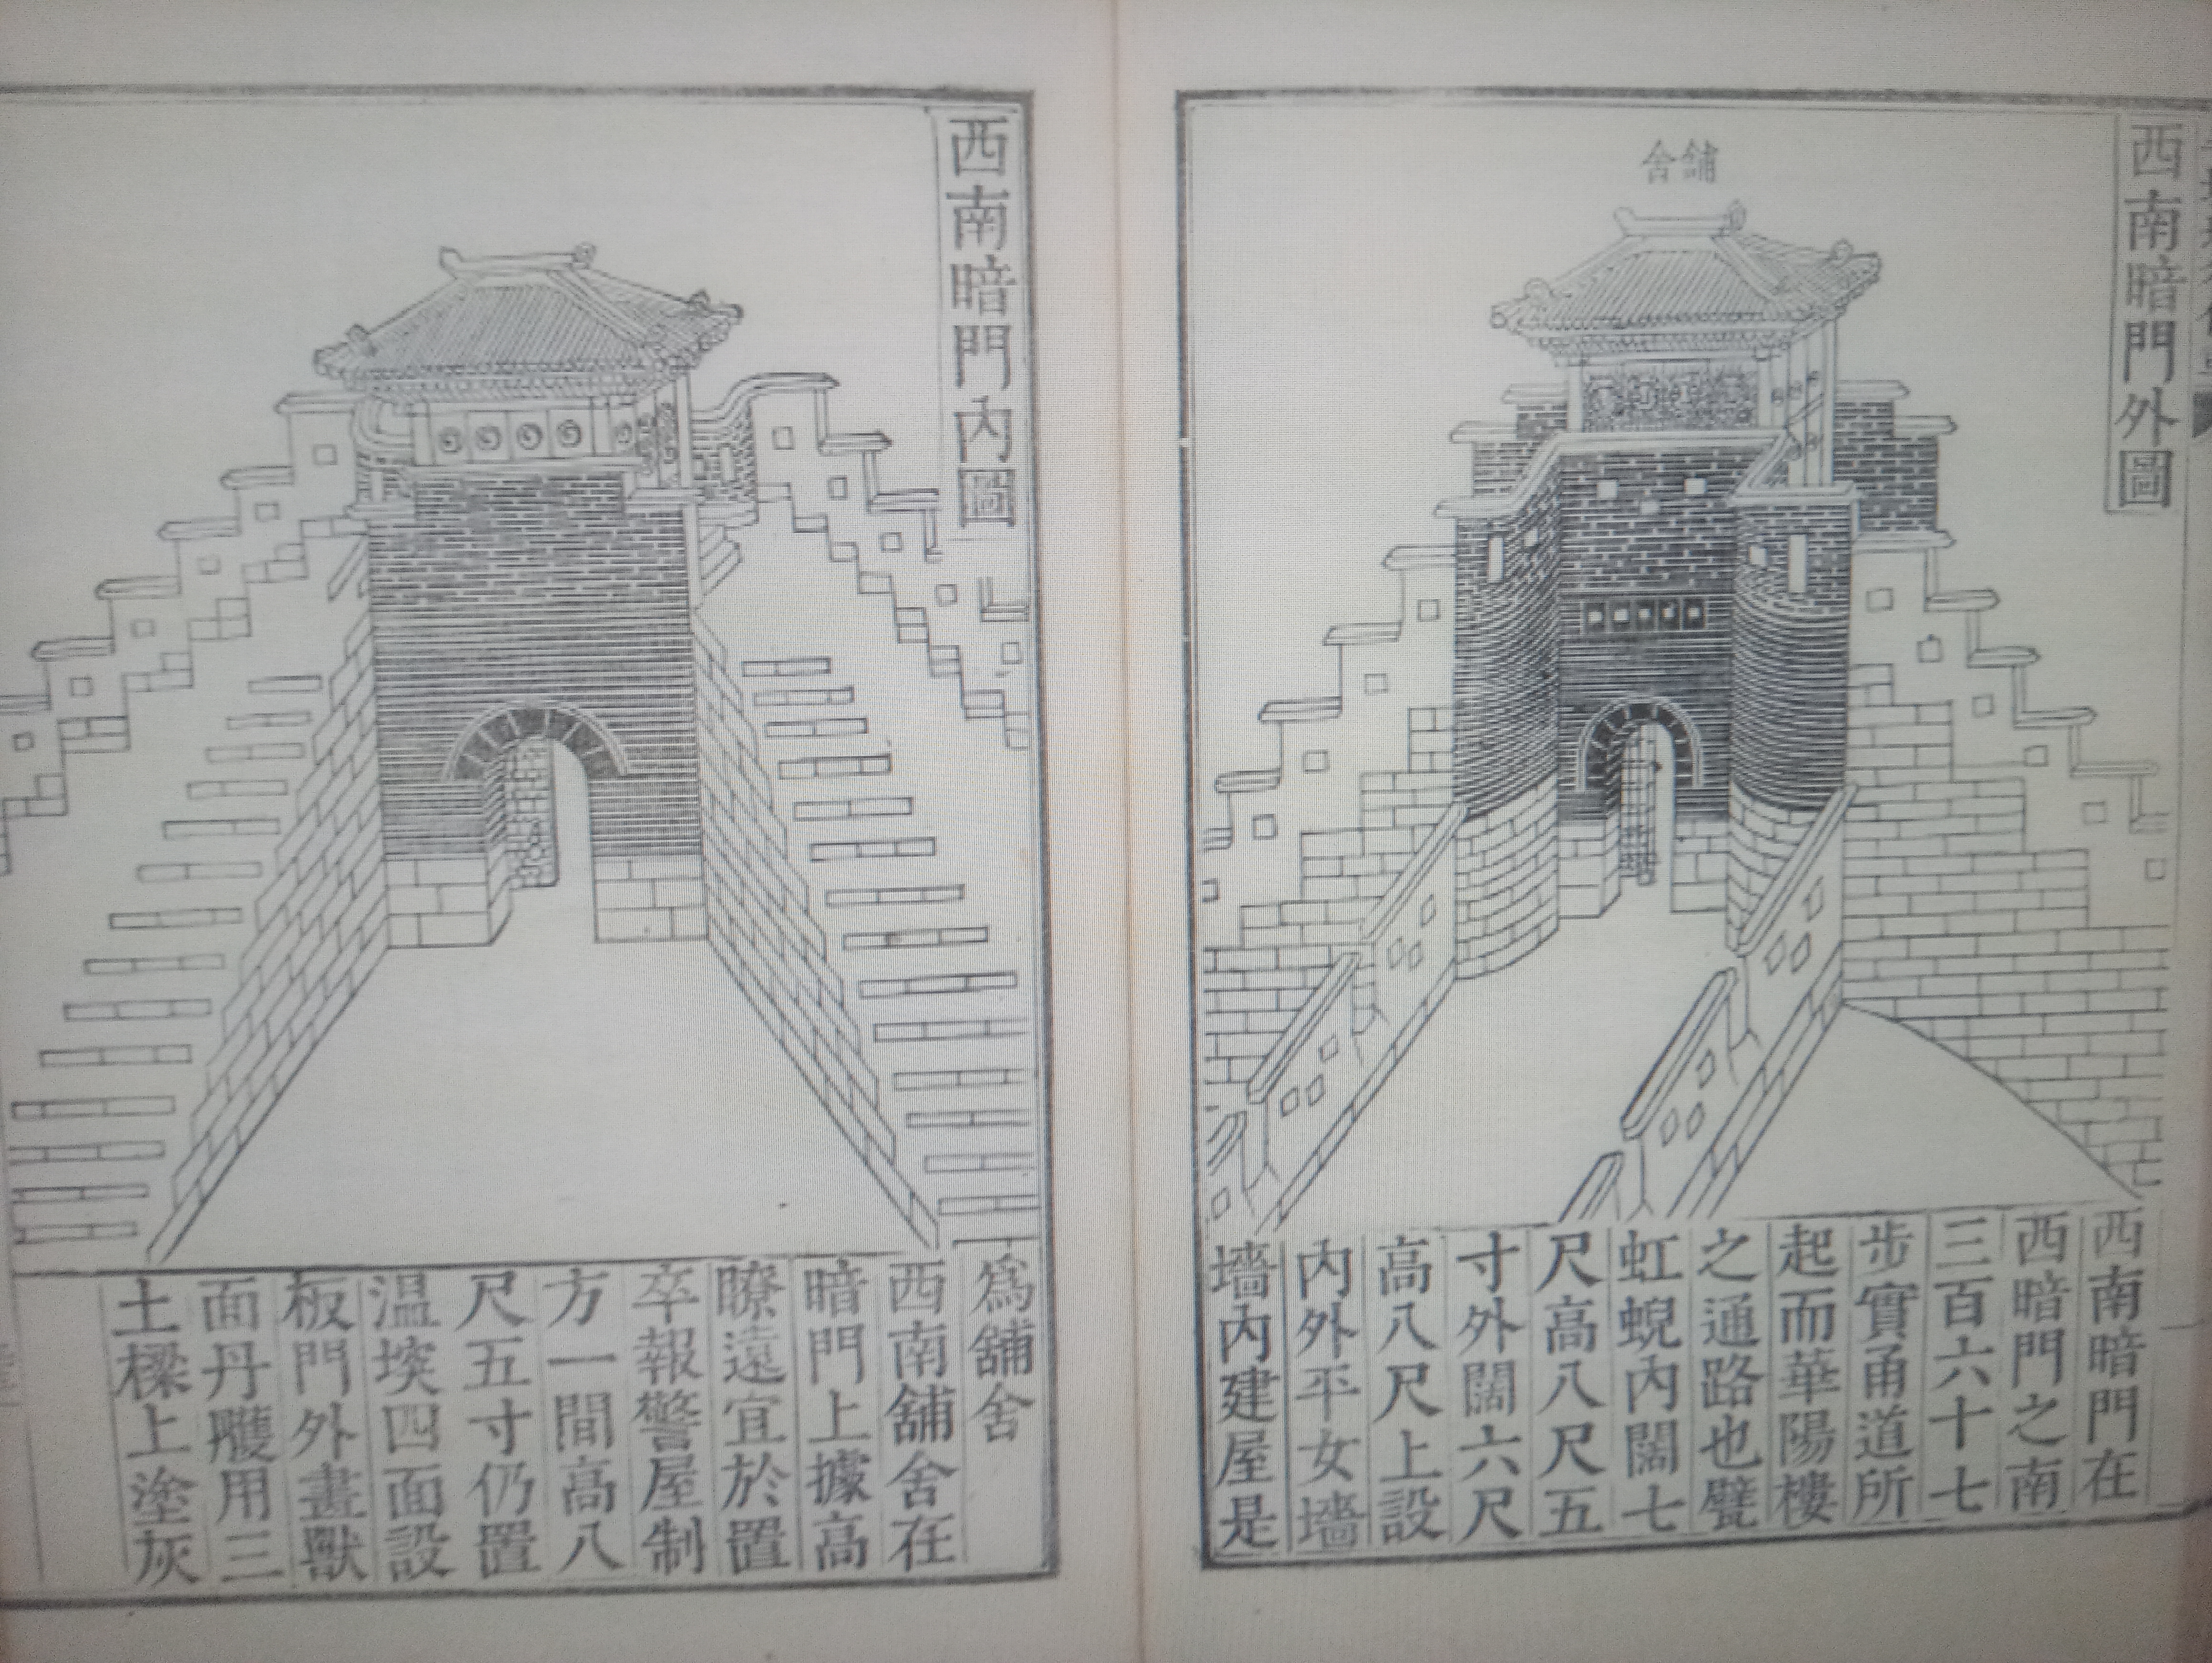 西南暗門外圖
舖舍
西南暗門在
西暗門之南
三百六十七
步實甬道所
起而華陽樓
之通路也甓
虹蜺內闊七
尺高八尺五
寸外闊六尺
高八尺上設
內外平女墻
墻內建屋是
西南暗門內圖
爲舖舍
西南舖舍在
暗門上據高
瞭遠宜於置
卒報警屋制
方一間高八
尺五寸仍置
温堗四面設
板門外畫獸
面丹雘用三
土樑上塗灰